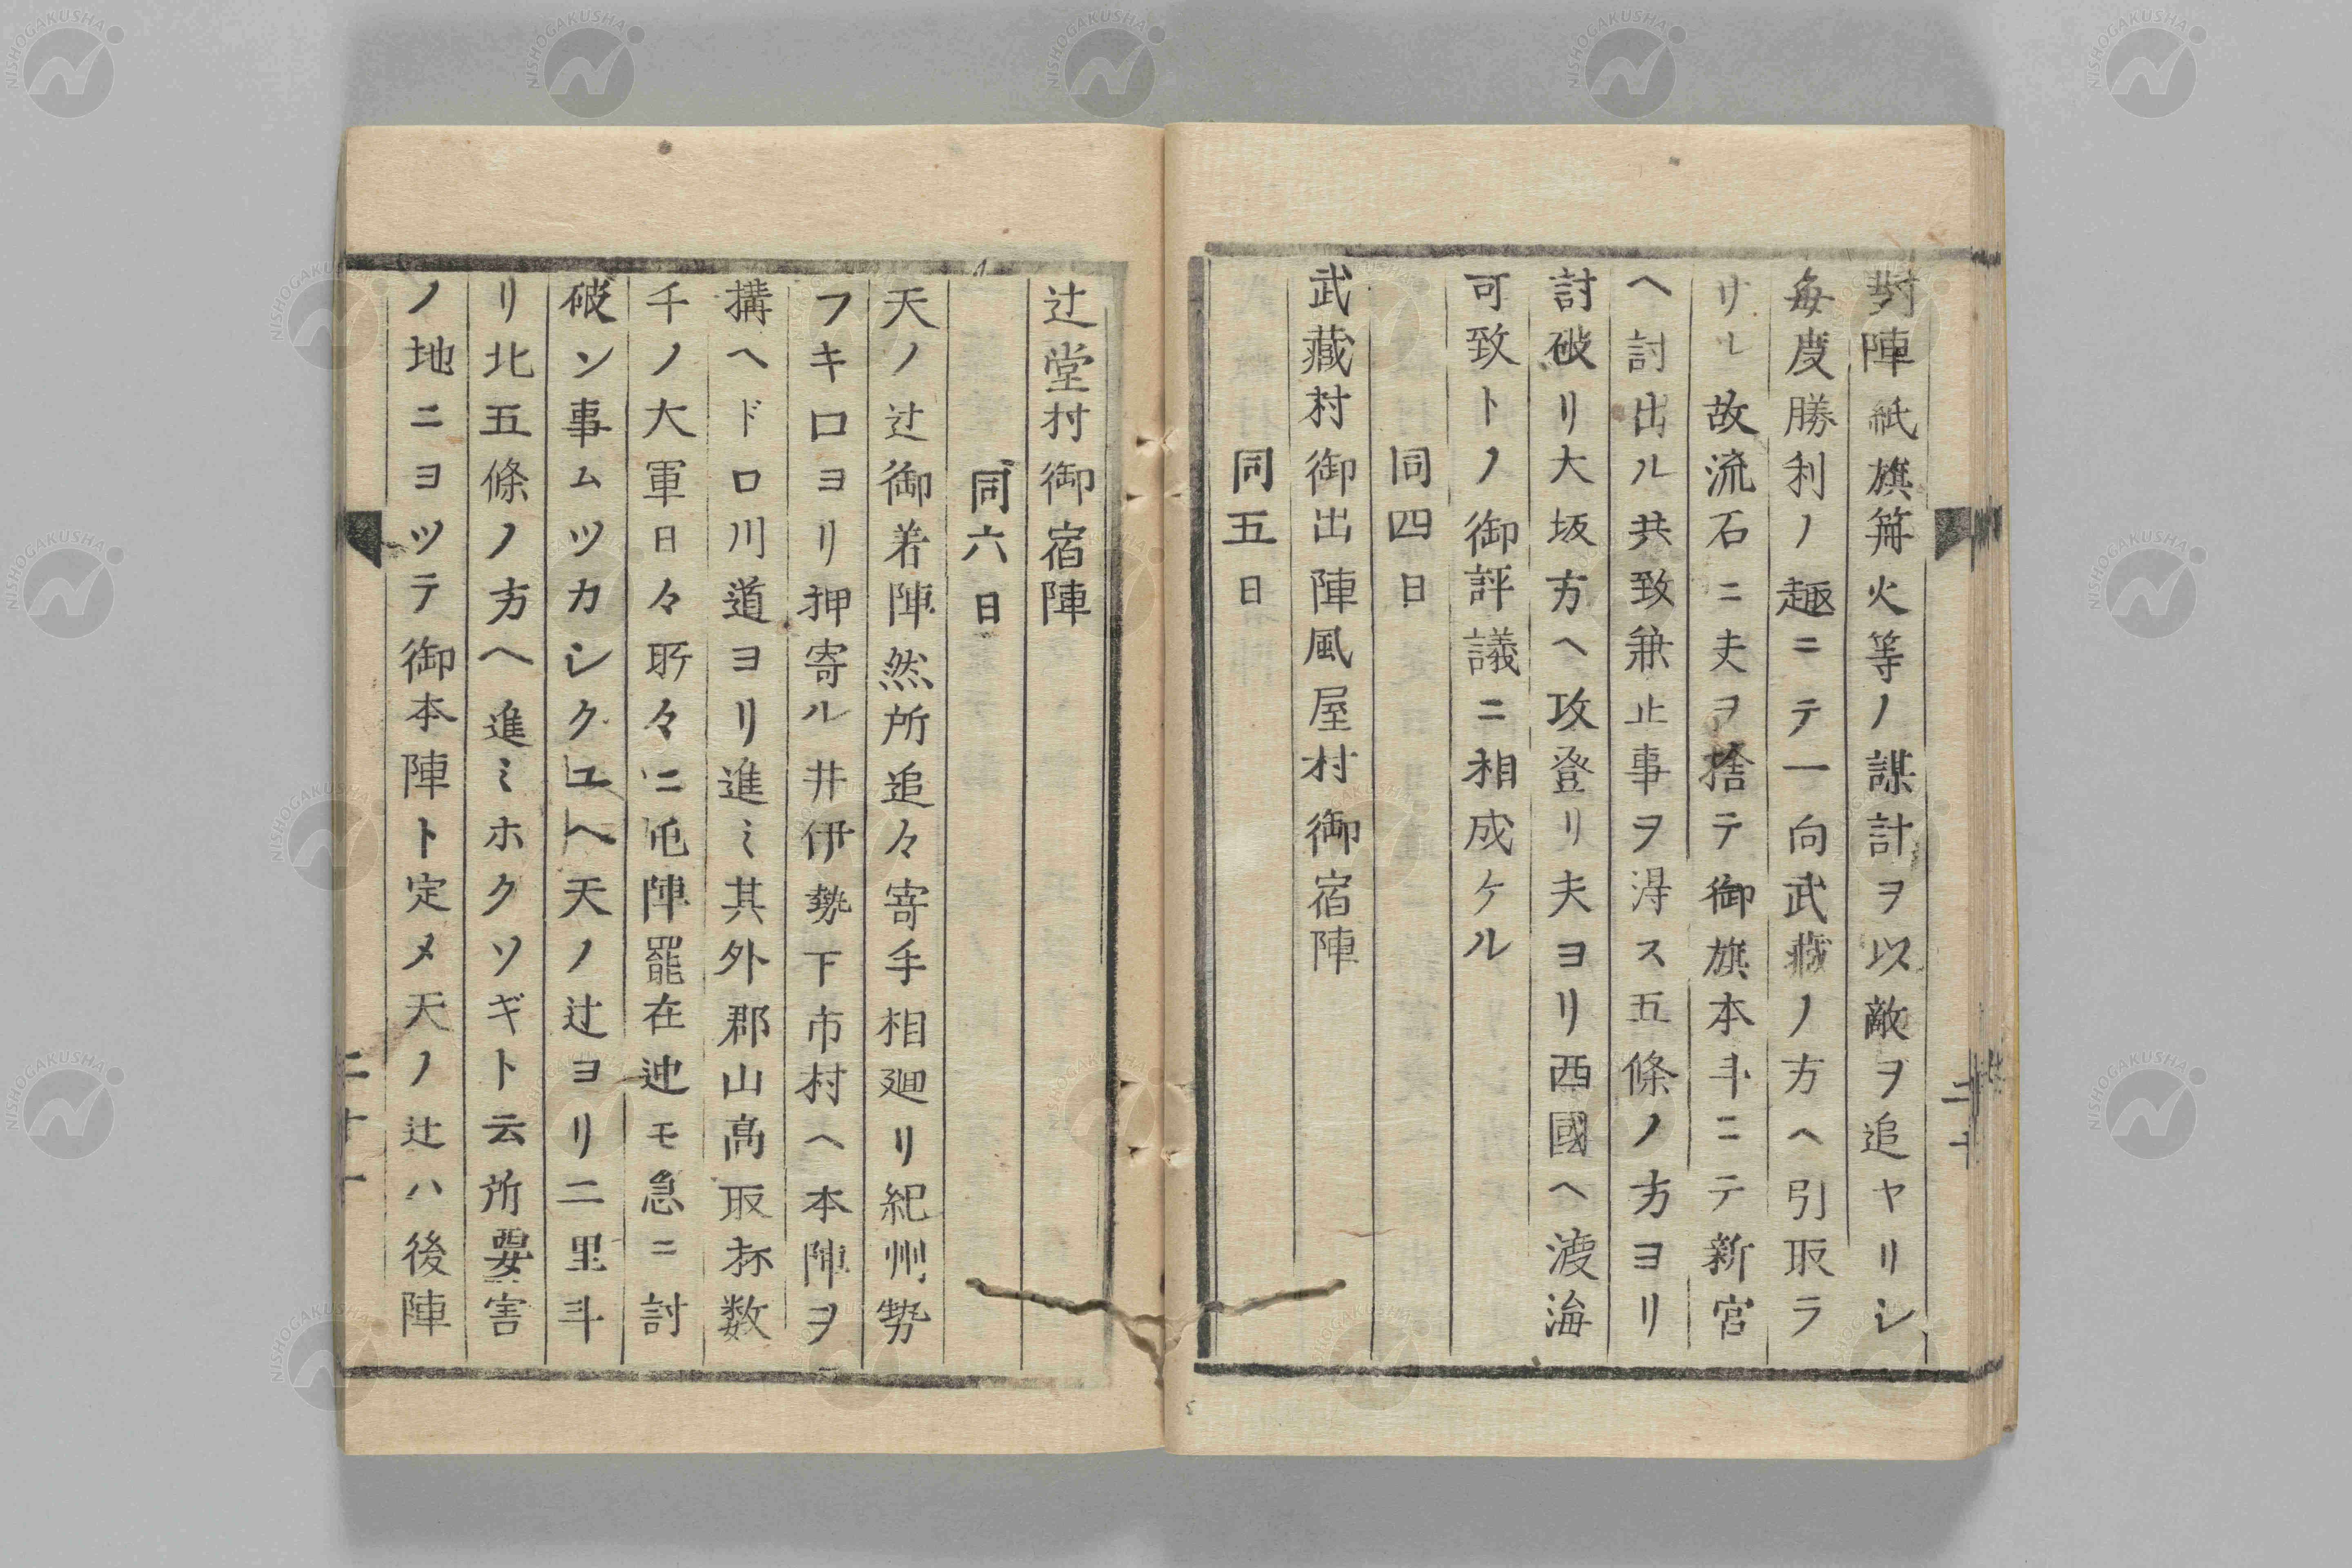 對陣紙旗篝火等ノ謀計ヲ以敵ヲ追ヤリシ
毎度勝利ノ趣ニテ一向武藏ノ方ヘ引取ラ
リレ故流石ニ夫ヲ捨テ御旗本斗ニテ新宮
ヘ討出ル共致兼止事ヲ得ス五條ノ方ヨリ
討破リ大坂方ヘ攻登リ夫ヨリ西國ヘ渡海
可致トノ御評議ニ相成ケル
同四日
武藏村御出陣風屋村御宿陣
同五日
辻堂村御宿陣
同六日
天ノ辻御着陣然所追々寄手相廻リ紀州勢
フキ口ヨリ押寄ル井伊勢下市村ヘ本陣ヲ
搆ヘドロ川道ヨリ進ミ其外郡山髙取抔数
千ノ大軍日々所々ニ屯陣罷在迚モ急ニ討
破ン事ムツカシクユヘ天ノ辻ヨリ二里斗
リ北五條ノ方ヘ進ミホクソギト云所要害
ノ地ニヨツテ御本陣ト定メ天ノ辻ハ後陣
二十
二十一
NISHOGAKUSHA